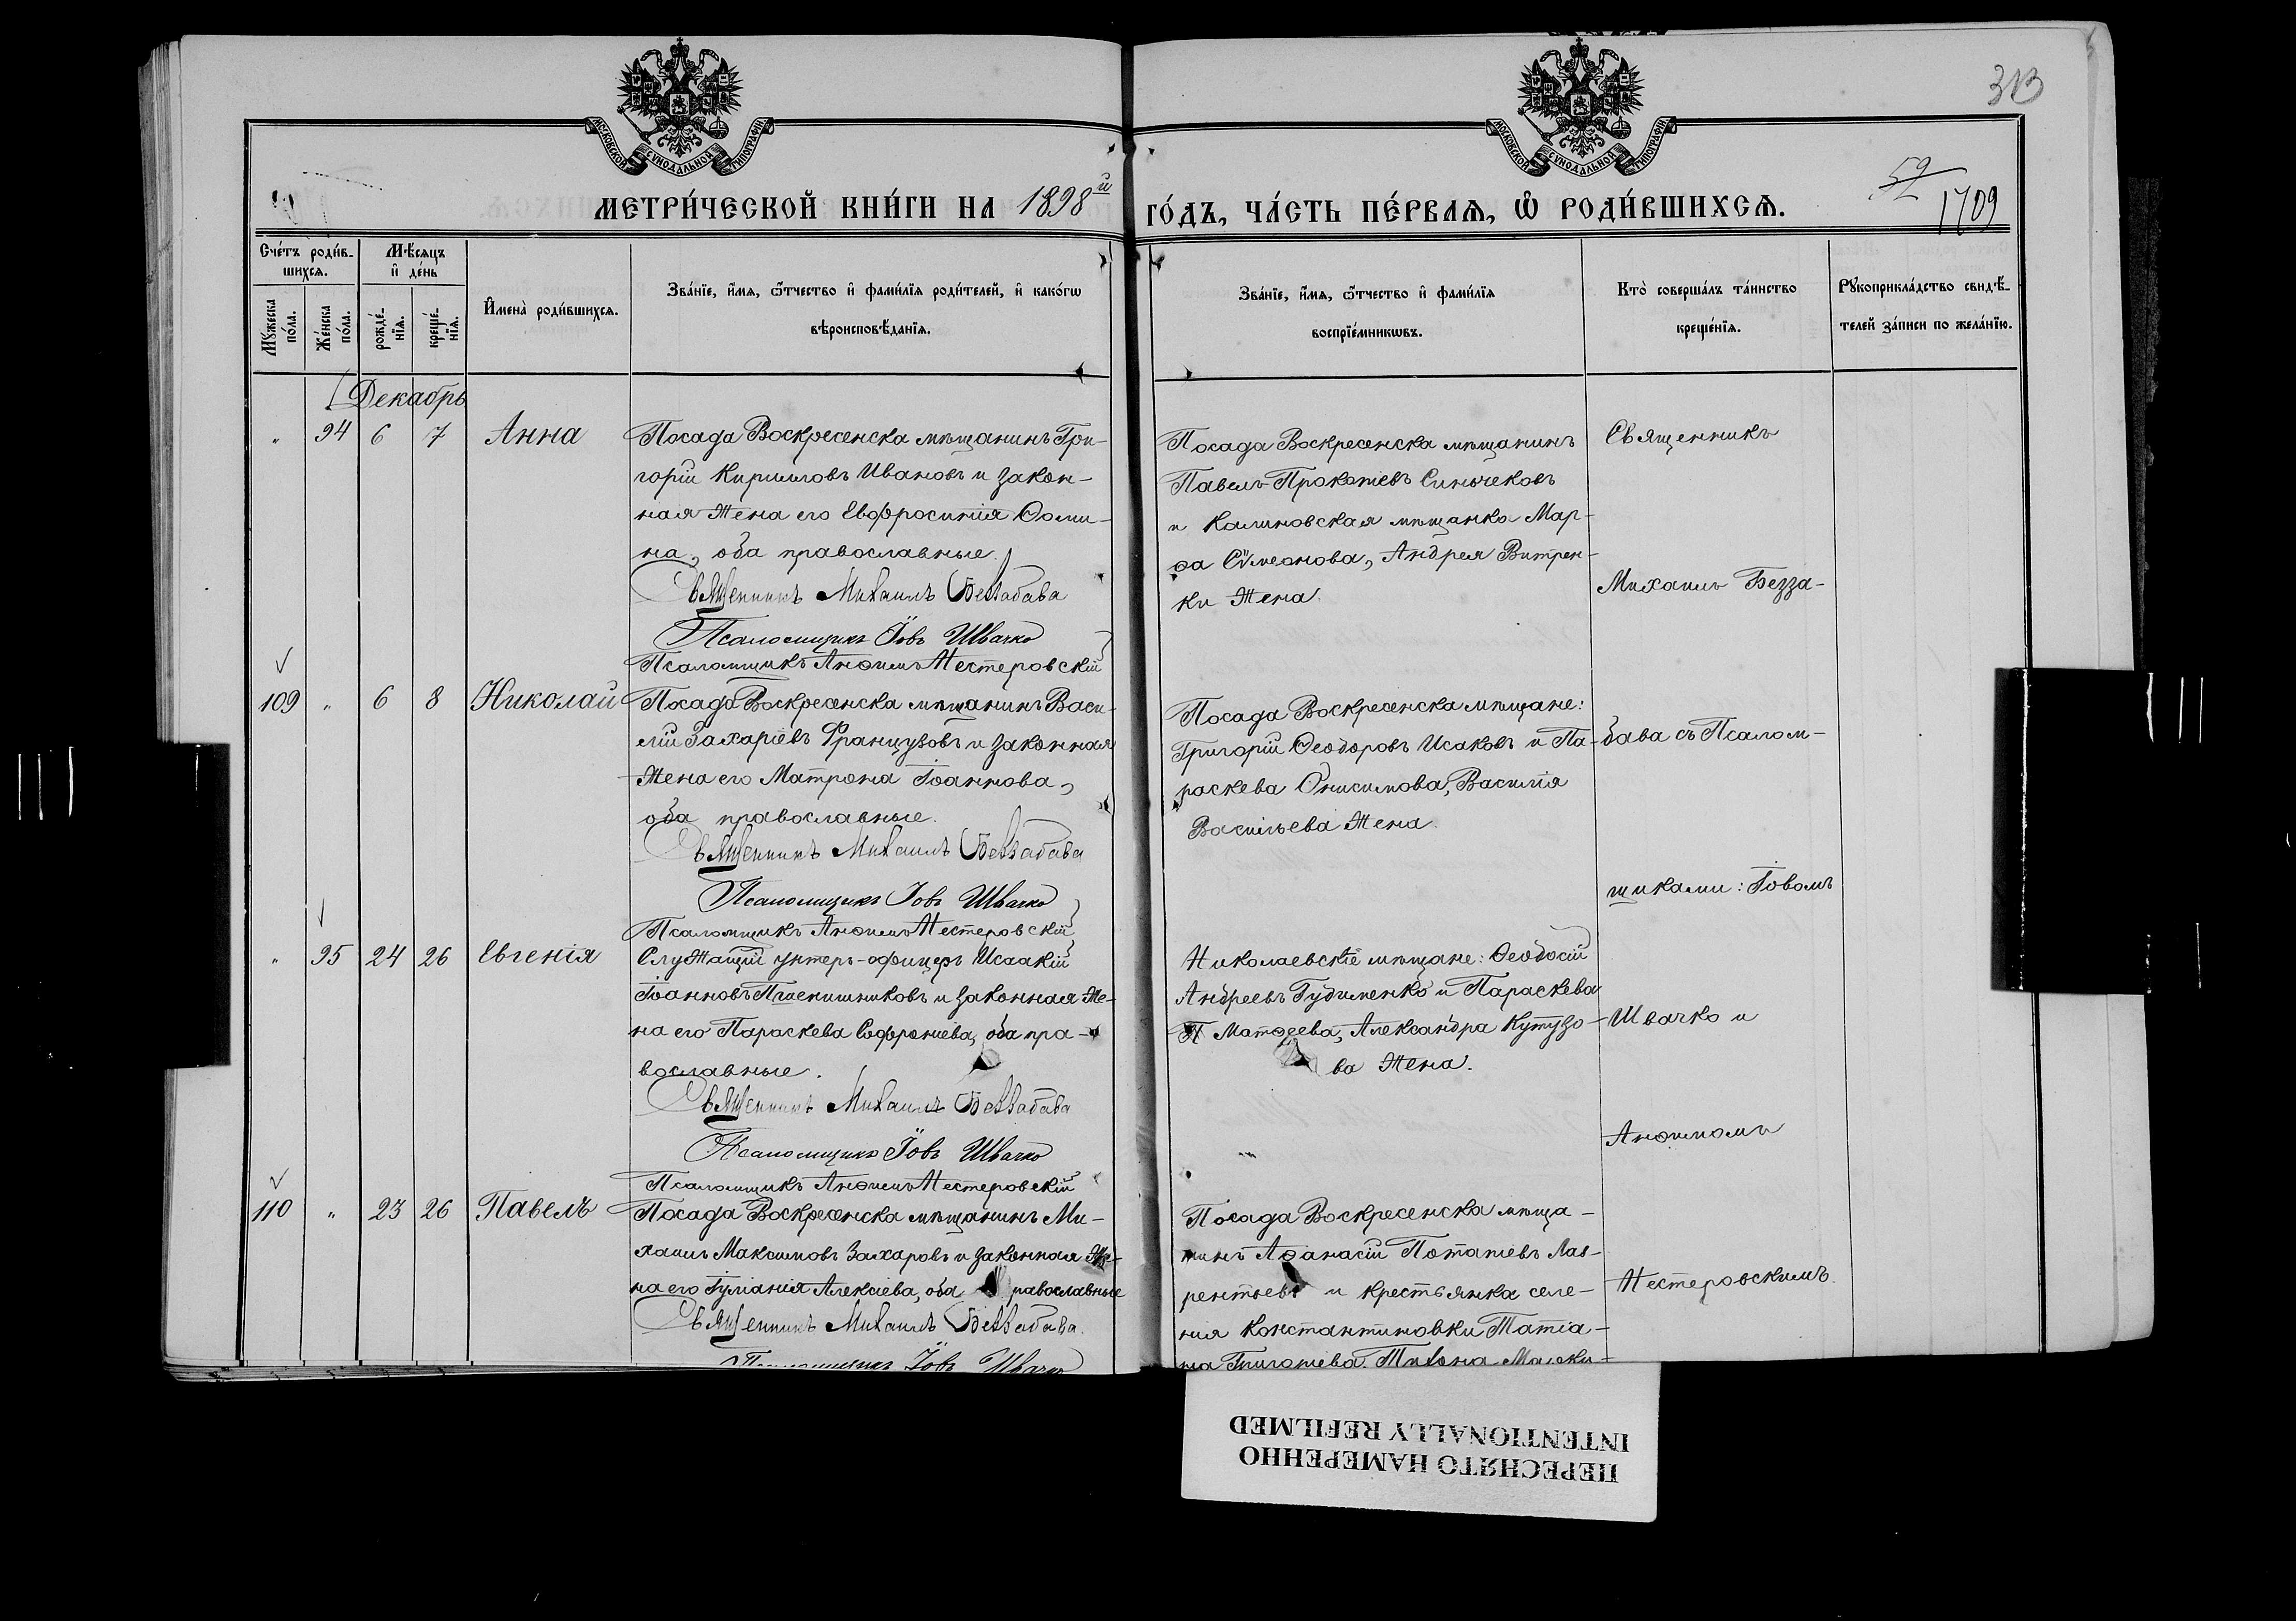 313
МОСКОВСКОЙ СѴНОДАЛЬНОЙ ТИПОГРАФІИ
МОСКОВСКОЙ СѴНОДАЛЬНОЙ ТИПОГРАФІИ
59/1709
МЕТРИ́ЧЕСКОЙ КНИ́ГИ НА 1898й ГО́ДЪ, ЧА́СТЬ ПЕ́РВАѦ, Ѡ҆ РОДИ́ВШИХСѦ.
Сче́тъ роди́в-
шихсѧ.
Мѣ́сяцъ
и҆ де́нь
Мꙋ́жеска
по́ла.
Же́нска
по́ла.
рожде́-
нїѧ.
креще́-
нїѧ.
И҆мена̀ роди́вшихсѧ.
Зва́нїе, и҆́мѧ, ѻ҆́тчество и҆ фами́лїѧ роди́телей, и҆ како́гѡ
вѣроисповѣ́данїѧ.
Зва́нїе, и҆́мѧ, ѻ҆́тчество и҆ фами́лїѧ
воспрїе́мникѡвъ.
Кто̀ соверша́лъ та́инство
креще́нїѧ.
Рꙋкоприкла́дство свидѣ́-
телей за́писи по жела́нїю.
Декабрь
" 94 6 7 Анна
Посада Воскресенска мѣщанинъ Гри-
горій Кирилловъ Ивановъ и закон-
ная жена его Евфросинія Ѳоми-
на, оба православные.
Священникъ Михаилъ Беззабава
Псаломщикъ Іовъ Швачко
Псаломщикъ Анѳимъ Нестеровскій
Посада Воскресенска мѣщанинъ
Павелъ Прокопіевъ Синочековъ
и Калиновская мѣщанка Мар-
ѳа Сѵмеонова, Андрея Витрен-
ки жена.
109 " 6 8 Николай
Посада Воскресенска мѣщанинъ Васи-
лій Захаріевъ Французовъ и законная
жена его Матрона Іоаннова,
оба православные.
Священникъ Михаилъ Беззабава
Псаломщикъ Іовъ Швачко
Псаломщикъ Анѳимъ Нестеровскій
Посада Воскресенска мѣщане:
Григорій Ѳеодоровъ Исаковъ и Па-
раскева Онисимова, Василія
Васильева жена.
" 95 24 26 Евгенія
Служащій унтеръ-офицеръ Исаакій
Іоанновъ Пшенишниковъ и законная же-
на его Параскева Софроніева, оба пра-
вославные.
Священникъ Михаилъ Беззабава
Псаломщикъ Іовъ Швачко
Псаломщикъ Анѳимъ Нестеровскій
Николаевскіе мѣщане: Ѳеодосій
Андреевъ Гудименко и Параскева
Матѳеева, Александра Кутузо-
ва жена.
110 " 23 26 Павелъ
Посада Воскресенска мѣщанинъ Ми-
хаилъ Максимовъ Захаровъ и законная же-
на его Іуліанія Алексіева, оба православные
Священникъ Михаилъ Беззабава.
Псаломщикъ Іовъ Швачко
Посада Воскресенска мѣща-
нинъ Аѳанасій Потапіевъ Лав-
рентьевъ и крестьянка селе-
нія Константиновки Татіа-
на Григорьева, Тихона
Священникъ
Михаилъ Безза-
бава съ Псалом-
щиками: Іовомъ
Швачко и
Анѳимомъ
Нестеровскимъ.
ПЕРЕСНЯТО НАМЕРЕННО
INTENTIONALLY REFILMED